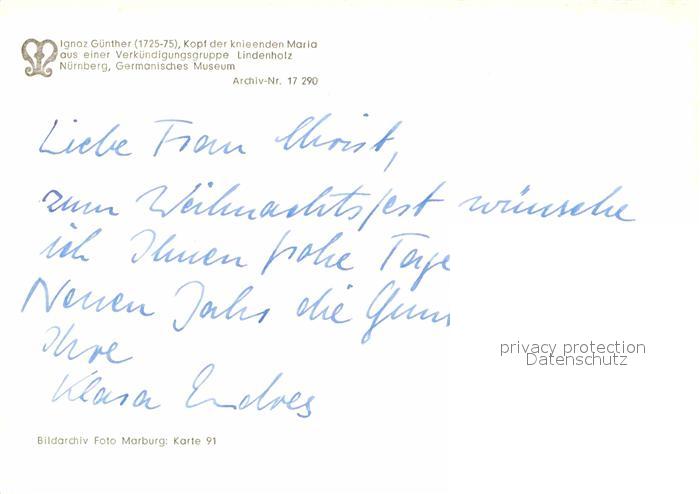 Ignaz Günther (1725-75), Kopf der knieenden Maria
aus einer Verkündigungsgruppe Lindenholz
Nürnberg, Germanisches Museum
Archiv-Nr. 17 290
Liebe Frau Christ,
zum Weihnachtsfest wünsche
ich Ihnen frohe Tage
Neuen Jahrs die
Ihre
Klara Endres
privacy protection
Datenschutz
Bildarchiv Foto Marburg: Karte 91